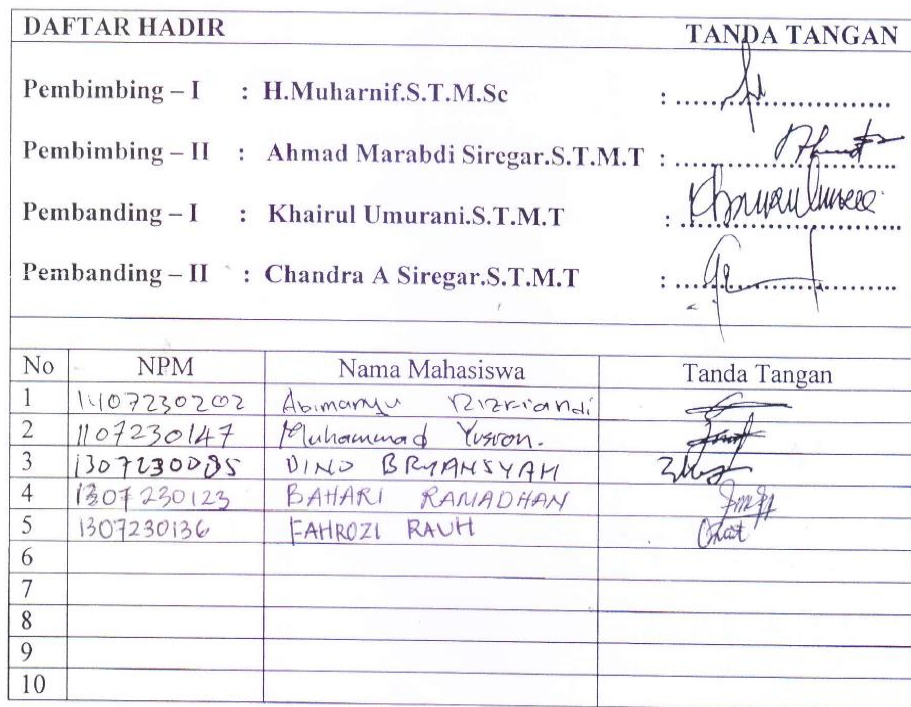 DAFTAR HADIR TANDA TANGAN
Pembimbing – I : H.Muharnif.S.T.M.Sc : ..............................
Pembimbing – II : Ahmad Marabdi Siregar.S.T.M.T : ..............................
Pembanding – I : Khairul Umurani.S.T.M.T : ..............................
Pembanding – II : Chandra A Siregar.S.T.M.T : ..............................
No NPM Nama Mahasiswa Tanda Tangan
1 1407230202 Abimanyu Rizriandi
2 1107230147 Muhammad Yusron.
3 1307230085 DINO BRYANSYAH
4 1307230123 BAHARI RAMADHAN
5 1307230136 FAHROZI RAUH
6
7
8
9
10